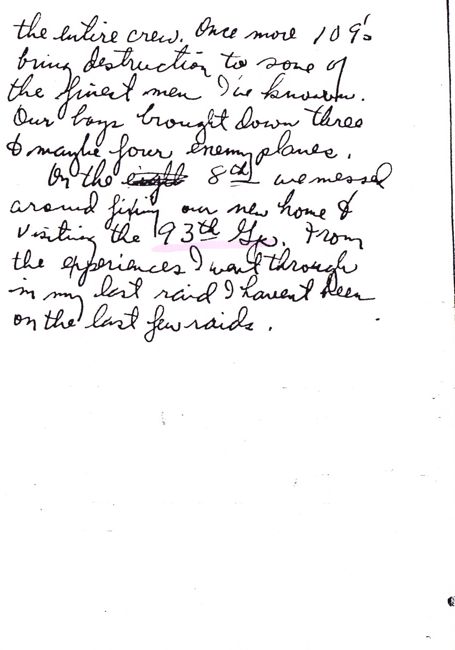 the entire crew. Once more 109's
bring destruction to some of
the finest men I've known.
Our boys brought down three
& maybe four enemy planes.
On the eighth 8th we messed
around fixing our new home &
visiting the 93th Gp. From
the experiences I went through
in my last raid I havent been
on the last few raids.